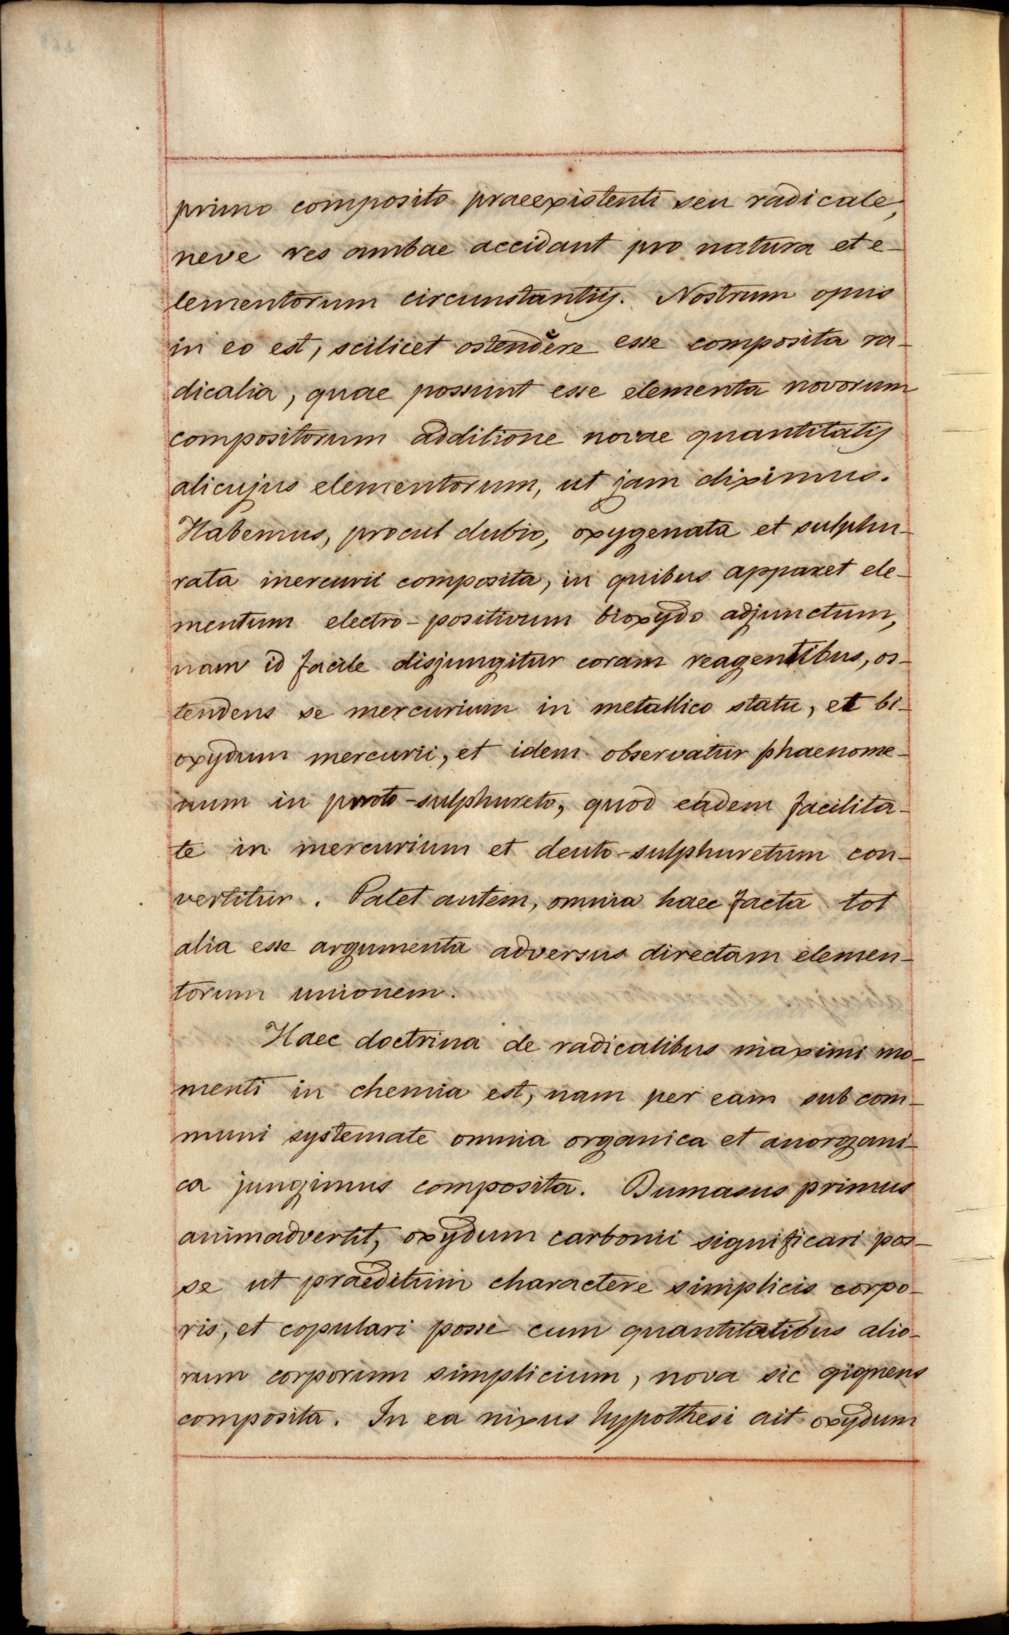 primo composito praeexistenti seu radicale,
neve res ambae accidant pro natura et e-
lementorum circunstantiis. Nostrum opus
in eo est, scilicet ostendere esse composita ra-
dicalia, quae possunt esse elementa novorum
compositorum additione novae quantitatis
alicujus elementorum, ut jam diximus.
Habemus, procul dubio, oxygenata et sulphu-
rata mercurii composita, in quibus apparet ele-
mentum electro-positivum bioxydo adjunctum,
nam id facile disjungitur coram reagentibus, os-
tendens se mercurium in metallico statu, et bi-
oxydum mercurii, et idem observatur phaenome-
num in proto-sulphureto, quod eadem facilita-
te in mercurium et deuto-sulphuretum con-
vertitur. Patet autem, omnia haec facta tot
alia esse argumenta adversus directam elemen-
torum unionem.
Haec doctrina de radicalibus maximi mo-
menti in chemia est, nam per eam sub com-
muni systemate omnia organica et anorgani-
ca jungimus composita. Dumasus primus
animadvertit, oxydum carbonii significari pos-
se ut praeditum charactere simplicis corpo-
ris, et copulari posse cum quantitatibus alio-
rum corporum simplicium, nova sic gignens
composita. In ea nixus hypothesi ait oxydum